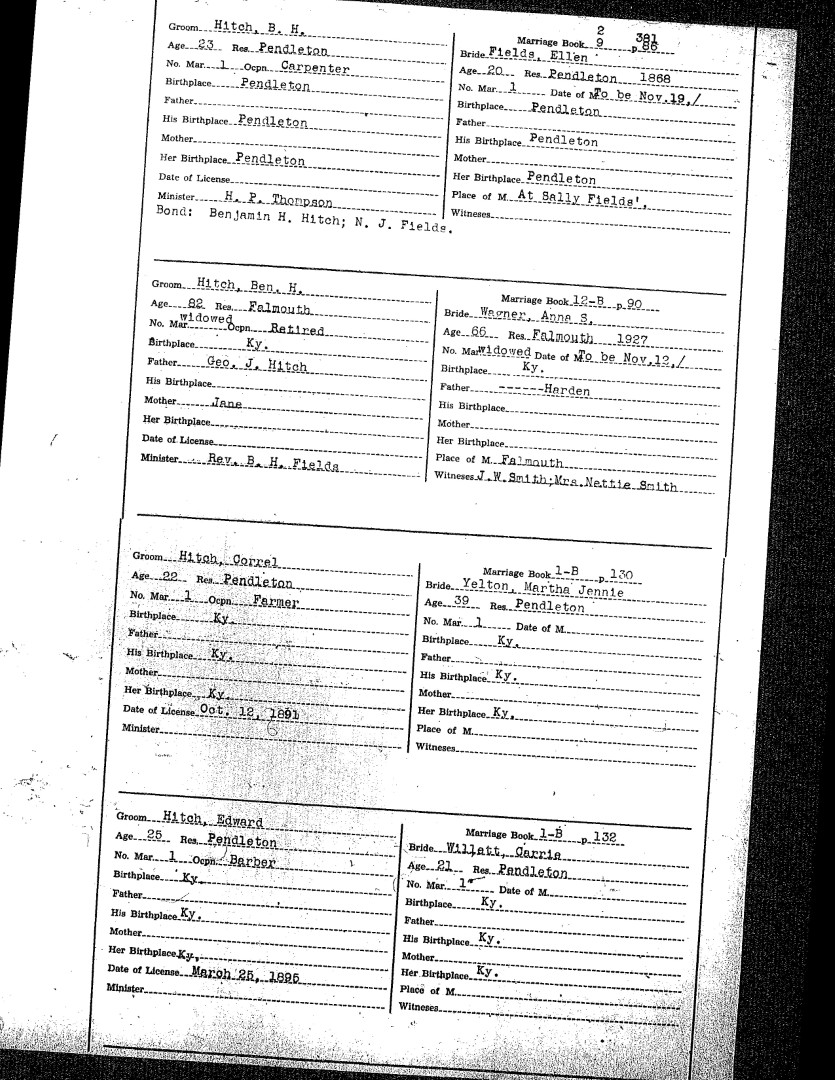 Groom Hitch, B. H.
Age 23 Res. Pendleton
No. Mar. 1 Ocpn. Carpenter
Birthplace Pendleton
Father
His Birthplace Pendleton
Mother
Her Birthplace Pendleton
Date of License
Minister H. P. Thompson
Bond: Benjamin H. Hitch; N. J. Fields.
2 381
Marriage Book 9 p. 86
Bride Fields, Ellen
Age 20 Res. Pendleton 1868
No. Mar. 1 Date of M. To be Nov.19,/
Birthplace Pendleton
Father
His Birthplace Pendleton
Mother
Her Birthplace Pendleton
Place of M. At Sally Fields'.
Witnesses
Groom Hitch, Ben. H.
Age 82 Res. Falmouth
No. Mar. widowed Ocpn. Retired
Birthplace Ky.
Father Geo. J. Hitch
His Birthplace
Mother Jane
Her Birthplace
Date of License
Minister Rev. B. H. Fields
Marriage Book 12-B p. 90
Bride Wagner, Anna S.
Age 66 Res. Falmouth 1927
No. Mar. widowed Date of M. To be Nov.12,/
Birthplace Ky.
Father ------Harden
His Birthplace
Mother
Her Birthplace
Place of M. Falmouth
Witnesses J.W.Smith;Mrs.Nettie Smith
Groom Hitch, Correl
Age 22 Res. Pendleton
No. Mar. 1 Ocpn. Farmer
Birthplace Ky.
Father
His Birthplace Ky.
Mother
Her Birthplace Ky.
Date of License Oct. 12, 1891
6
Minister
Marriage Book 1-B p. 130
Bride Yelton, Martha Jennie
Age 39 Res. Pendleton
No. Mar. 1 Date of M.
Birthplace Ky.
Father
His Birthplace Ky.
Mother
Her Birthplace Ky.
Place of M.
Witnesses
Groom Hitch, Edward
Age 25 Res. Pendleton
No. Mar. 1 Ocpn. Barber
Birthplace Ky.
Father
His Birthplace Ky.
Mother
Her Birthplace Ky.
Date of License March 25, 1895
Minister
Marriage Book 1-B p. 132
Bride Willett, Carrie
Age 21 Res. Pendleton
No. Mar. 1 Date of M.
Birthplace Ky.
Father
His Birthplace Ky.
Mother
Her Birthplace Ky.
Place of M.
Witnesses